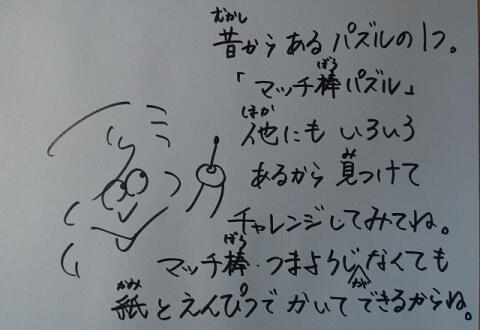 昔からあるパズルの1つ。
「マッチ棒パズル」
他にもいろいろ
あるから見つけて
チャレンジしてみてね。
マッチ棒・つまようじがなくても
紙とえんぴつでかいてできるからね。